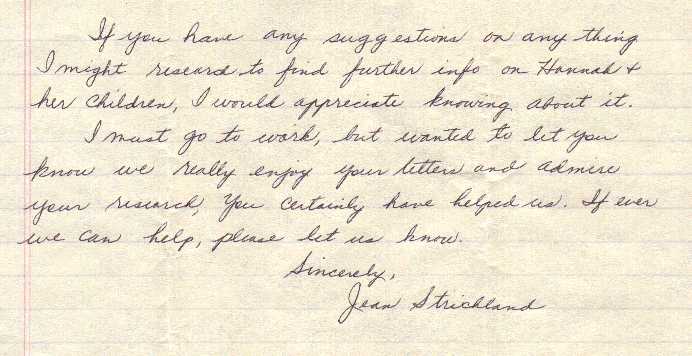 If you have any suggestions on any thing
I might research to find further info on Hannah &
her children, I would appreciate knowing about it.
I must go to work, but wanted to let you
know we really enjoy your letters and admire
your research. You certainly have helped us. If ever
we can help, please let us know.
Sincerely,
Jean Strickland